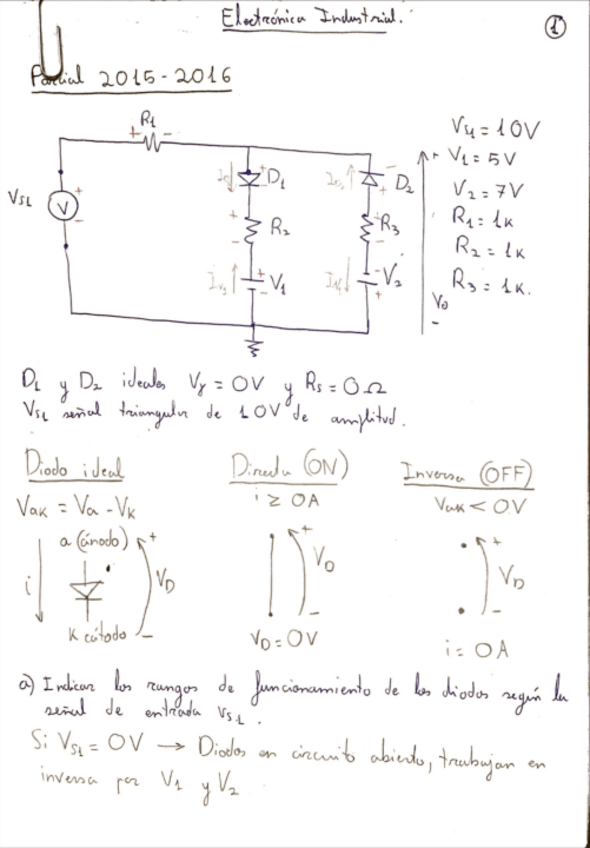 Electrónica Industrial.
1
Parcial 2015-2016
R1
+ -
VS1
V
+
-
D1
D2
R2
R3
V1
V2
Vo
+
-
VS1 = 10V
V1 = 5V
V2 = 7V
R1 = 1K
R2 = 1K
R3 = 1K.
D1 y D2 ideales Vγ = 0V y Rs = 0Ω
VS1 señal triangular de 10V de amplitud.
Diodo ideal
Directa (ON)
Inversa (OFF)
VAK = Va - VK
i ≥ 0A
VAK < 0V
a (ánodo)
i
VD
K cátodo
+
-
VD
+
-
VD
VD = 0V
i = 0A
a) Indicar los rangos de funcionamiento de los diodos según la
señal de entrada VS1.
Si VS1 = 0V → Diodos en circuito abierto, trabajan en
inversa por V1 y V2